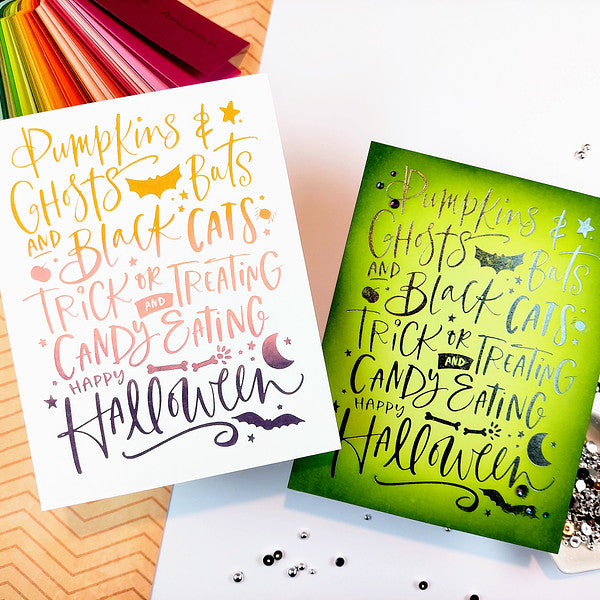 Pumpkins &
GHOSTS Bats
AND Black CATS
TRICK OR TREATING
AND
CANDY EATING
HAPPY
Halloween
Pumpkins &
GHOSTS Bats
AND Black CATS
TRICK OR TREATING
AND
CANDY EATING
HAPPY
Halloween